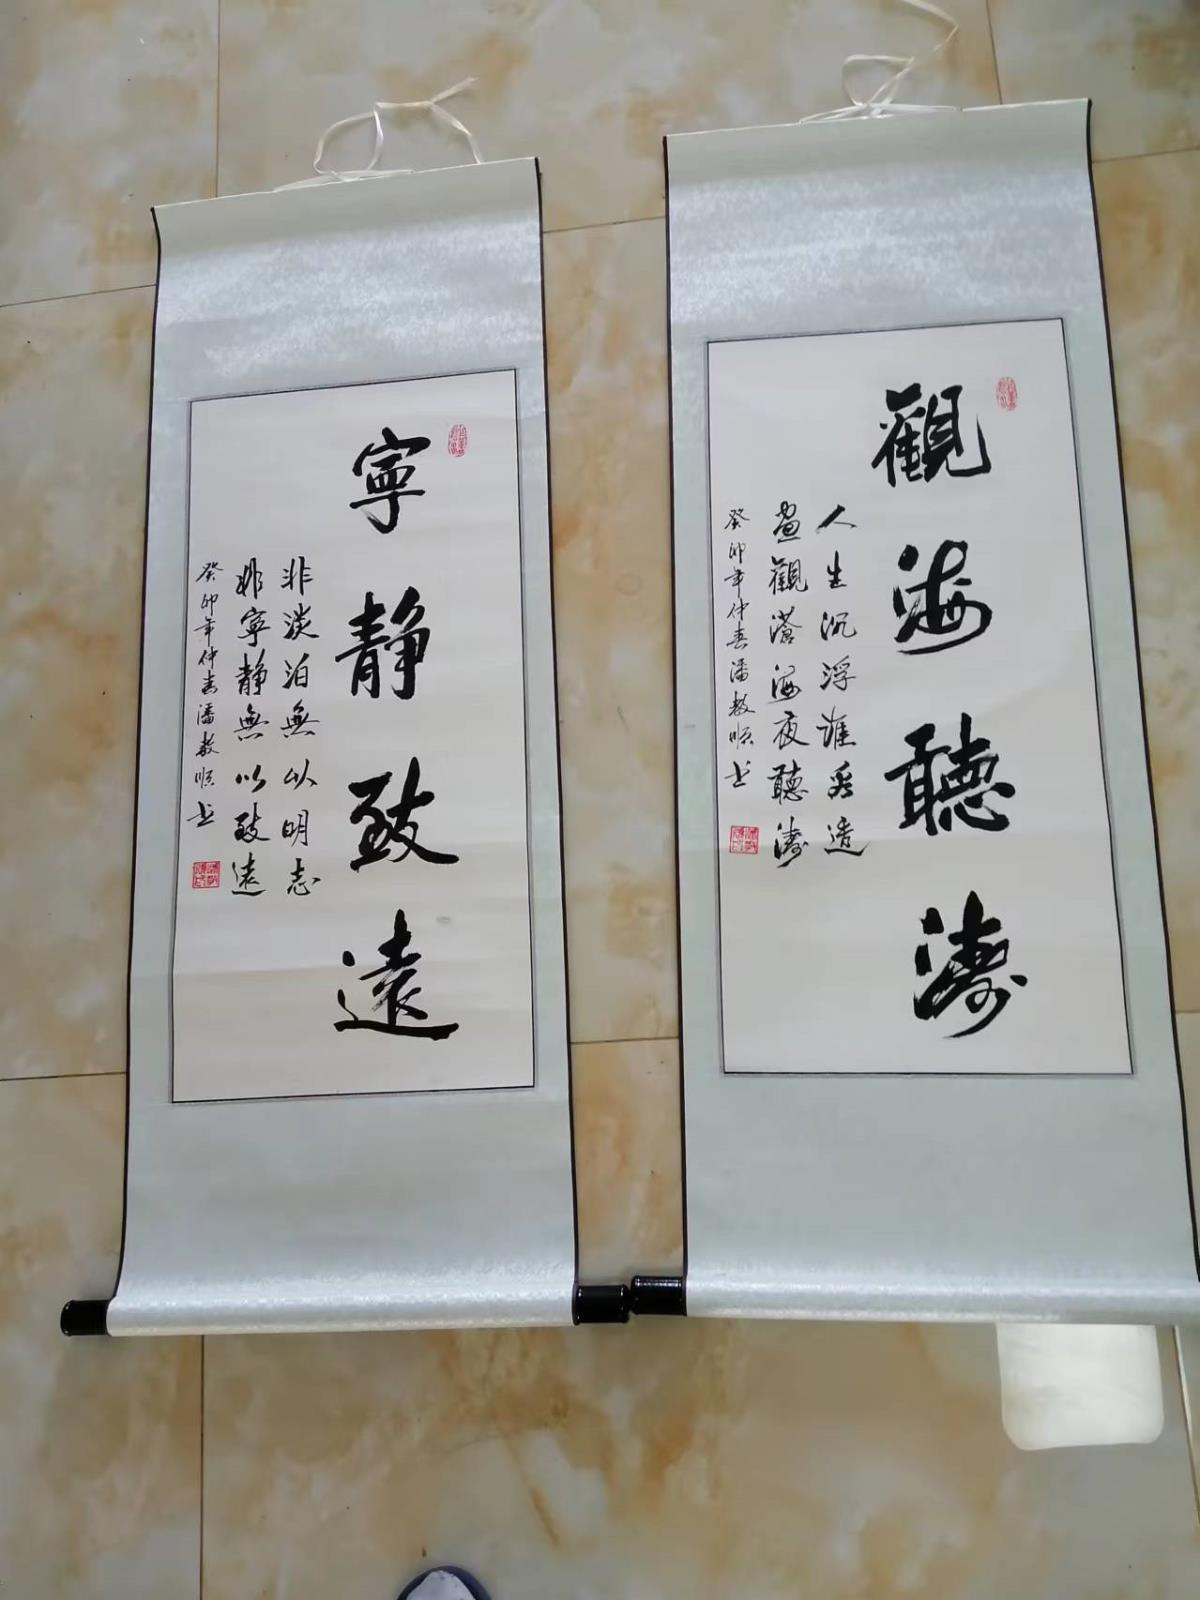 寧静致遠
非淡泊無以明志
非寧静無以致遠
癸卯年仲春潘教順书
觀海聽濤
人生沉浮誰
晝觀滄海夜聽濤
癸卯年仲春潘教順书